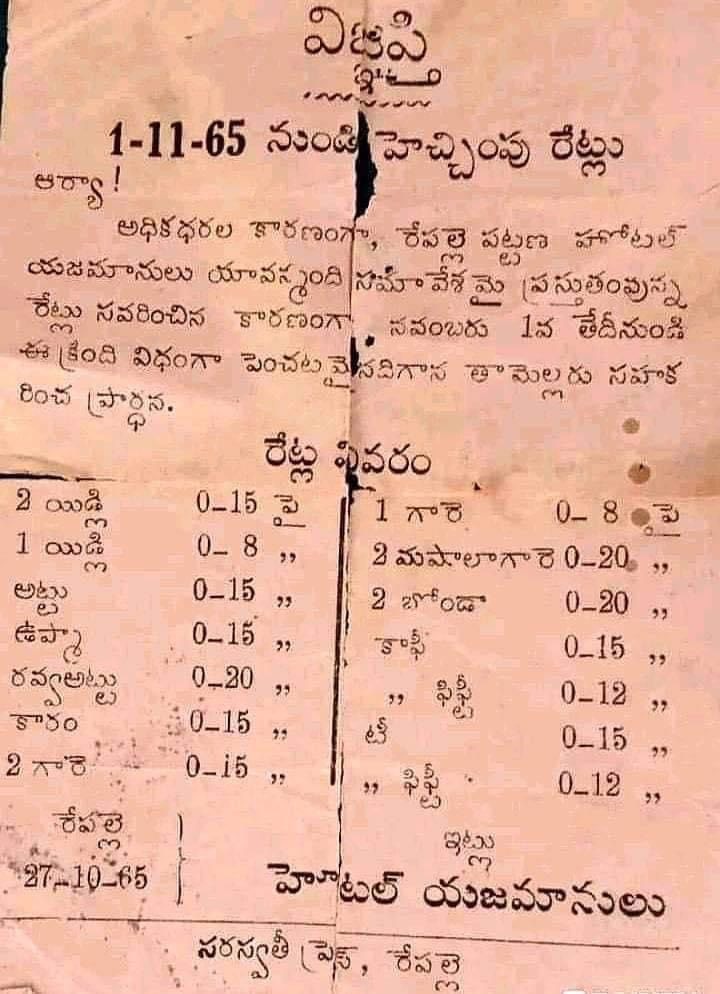 విజ్ఞప్తి
1-11-65 నుండి హెచ్చింపు రేట్లు
ఆర్యా !
అధికధరల కారణంగా, రేపల్లె పట్టణ హోటల్
యజమానులు యావన్మంది సమావేశమై ప్రస్తుతంవున్న
రేట్లు సవరించిన కారణంగా నవంబరు 1వ తేదీనుండి
ఈ క్రింది విధంగా పెంచటమైనదిగాన తామెల్లరు సహక
రించ ప్రార్ధన.
రేట్ల వివరం
2 యిడ్లి 0-15 పై
1 యిడ్లి 0-8 ,,
అట్టు 0-15 ,,
ఉప్మా 0-15 ,,
రవ్వఅట్టు 0-20 ,,
కారం 0-15 ,,
2 గారె 0-15 ,,
1 గారె 0-8 పై
2 మసాలాగారె 0-20 ,,
2 బోండా 0-20 ,,
కాఫీ 0-15 ,,
,, ఫిఫ్టీ 0-12 ,,
టీ 0-15 ,,
,, ఫిఫ్టీ 0-12 ,,
రేపల్లె
27-10-65
ఇట్లు
హోటల్ యజమానులు
సరస్వతీ ప్రెస్, రేపల్లె